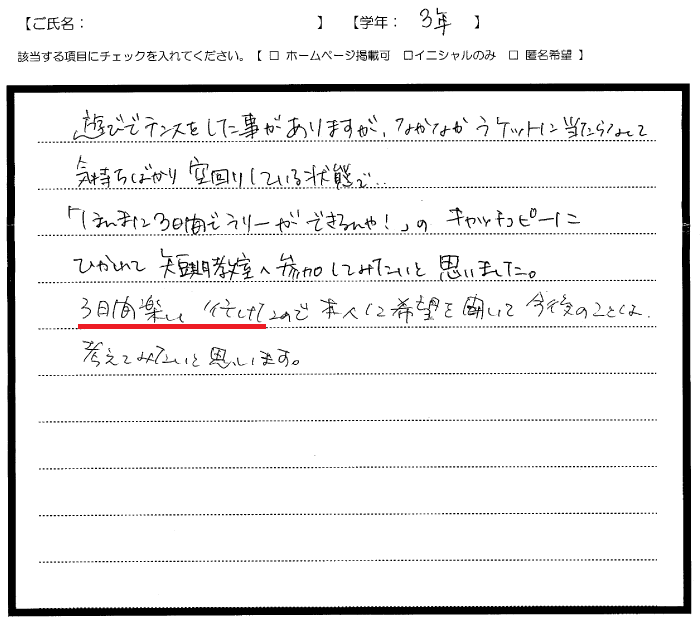 【ご氏名： 】 【学年： 3年 】
該当する項目にチェックを入れてください。【 □ ホームページ掲載可 □イニシャルのみ □ 匿名希望 】
遊びでテニスをした事がありますが、なかなかラケットに当たらなくて
気持ちばかり空回りしている状態で‥
「ほんまに3日間でラリーができるんや！」の キャッチコピーに
ひかれて 短期教室へ参加してみたいと思いました。
3日間楽しく 行けたので 本人に希望を聞いて 今後のことは、
考えてみたいと思います。